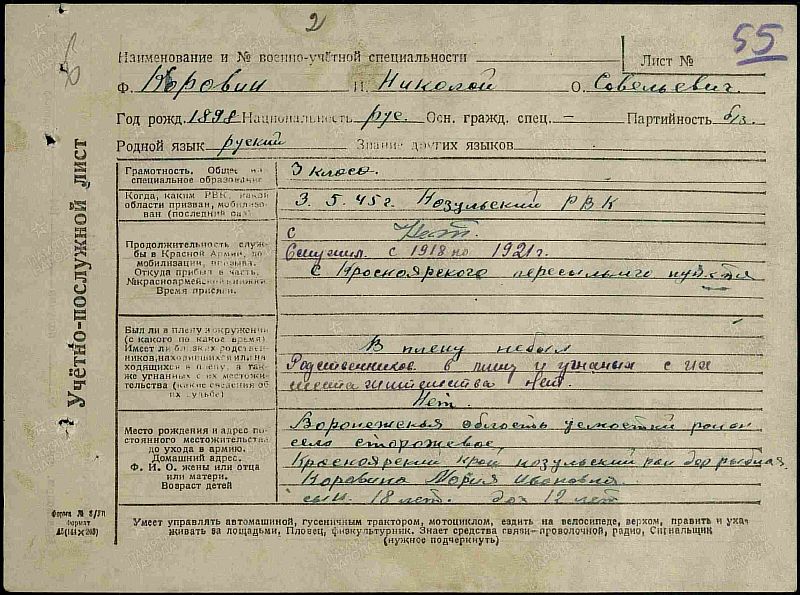 2
55
Наименование и № военно-учётной специальности Лист №
Ф. Коровин И. Николой О. Совельевич.
Год рожд. 1898 Национальность рус. Осн. гражд. спец. — Партийность б/п.
Родной язык руский Знание других языков
Учётно-послужной лист
Грамотность. Общее и специальное образование
3 класа.
Когда, каким РВК, какой области призван, мобилизован (последний раз)
3. 5. 45 г. Козульский РВК
Продолжительность службы в Красной Армии, до мобилизации, призыва. Откуда прибыл в часть. № красноармейской книжки Время присяги.
с Нет.
Служил. с 1918 по 1921 г.
с Красноярского пересыльного пункта
Был ли в плену и окружении (с какого по какое время) Имеет ли близких родственников, находившихся или находящихся в плену, а также угнанных с их местожительства (какие сведения об их судьбе)
В плену небыл
Родственников в плену и угнаных с их
места жительства нет.
Нет
Место рождения и адрес постоянного местожительства до ухода в армию. Домашний адрес. Ф. И. О. жены или отца или матери. Возраст детей
Воронежская область район
село сторожевое,
Красноярский край козульский рай рыбная
Коровина Мария Ивановна
сын. 18 лет. доч 12 лет
Форма № 8/УП
Формат
Умеет управлять автомашиной, гусеничным трактором, мотоциклом, ездить на велосипеде, верхом, править и уха-
живать за лощадьми, Пловец, физкультурник. Знает средства связи-проволочной, радио, Сигнальщик
(нужное подчеркнуть)